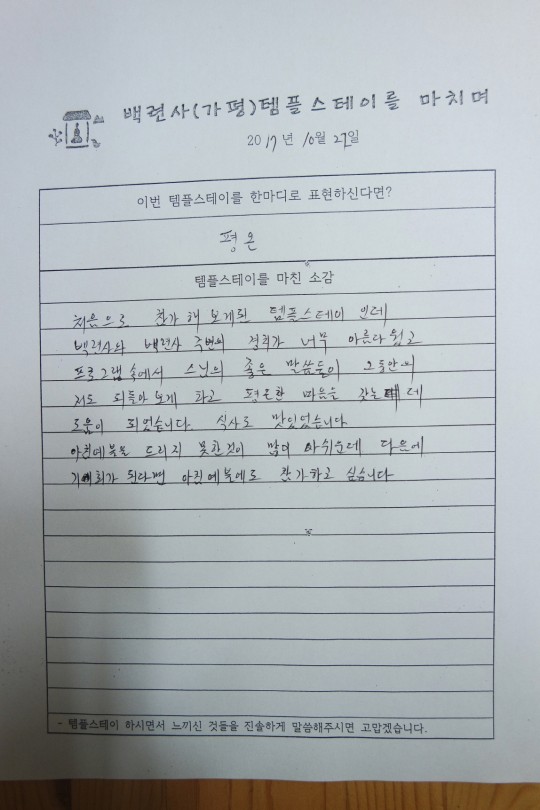 백련사(가평)템플스테이를 마치며
2017년 10월 27일
이번 템플스테이를 한마디로 표현하신다면?
평온
템플스테이를 마친 소감
처음으로 참가 해 보게된 템플스테이 인데
백련사와 백련사 주변의 경치가 너무 아름다웠고
프로그램 속에서 스님의 좋은 말씀들이 그동안의
저도 되돌아 보게 하고 평온한 마음을 갖는 데
도움이 되었습니다. 식사도 맛있었습니다
아침예불을 드리지 못한것이 많이 아쉬운데 다음에
기회가 된다면 아침예불에도 참가하고 싶습니다
- 템플스테이 하시면서 느끼신 것들을 진솔하게 말씀해주시면 고맙겠습니다.